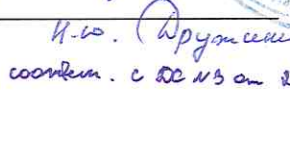 Н.Ю. Дружини
соответ. с ДС №3 от 2